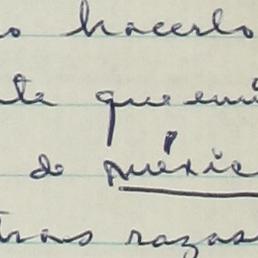 o hacerlo
te que emi
de méxic
tras razas